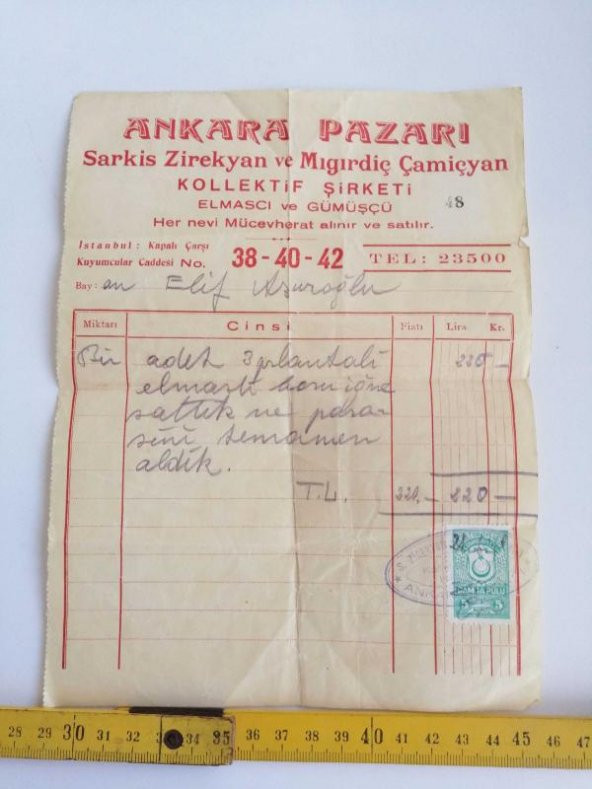 ANKARA PAZARI
Sarkis Zirekyan ve Mıgırdiç Çamiçyan
KOLLEKTİF ŞİRKETİ
ELMASCI ve GÜMÜŞÇÜ
48
Her nevi Mücevherat alınır ve satılır.
İstanbul: Kapalı Çarşı
Kuyumcular Caddesi No. 38-40-42 TEL: 23500
Bay: an Elif
Miktarı Cinsi Fiatı Lira Kr.
Bir adet 3 pırlantalı 220 -
elmaslı
sattık ve para
sını tamamen
aldık.
T.L. 220.- 220 -
5 5
28 29 30 31 32 35 36 37 38 39 40 41 42 43 44 45 46 47